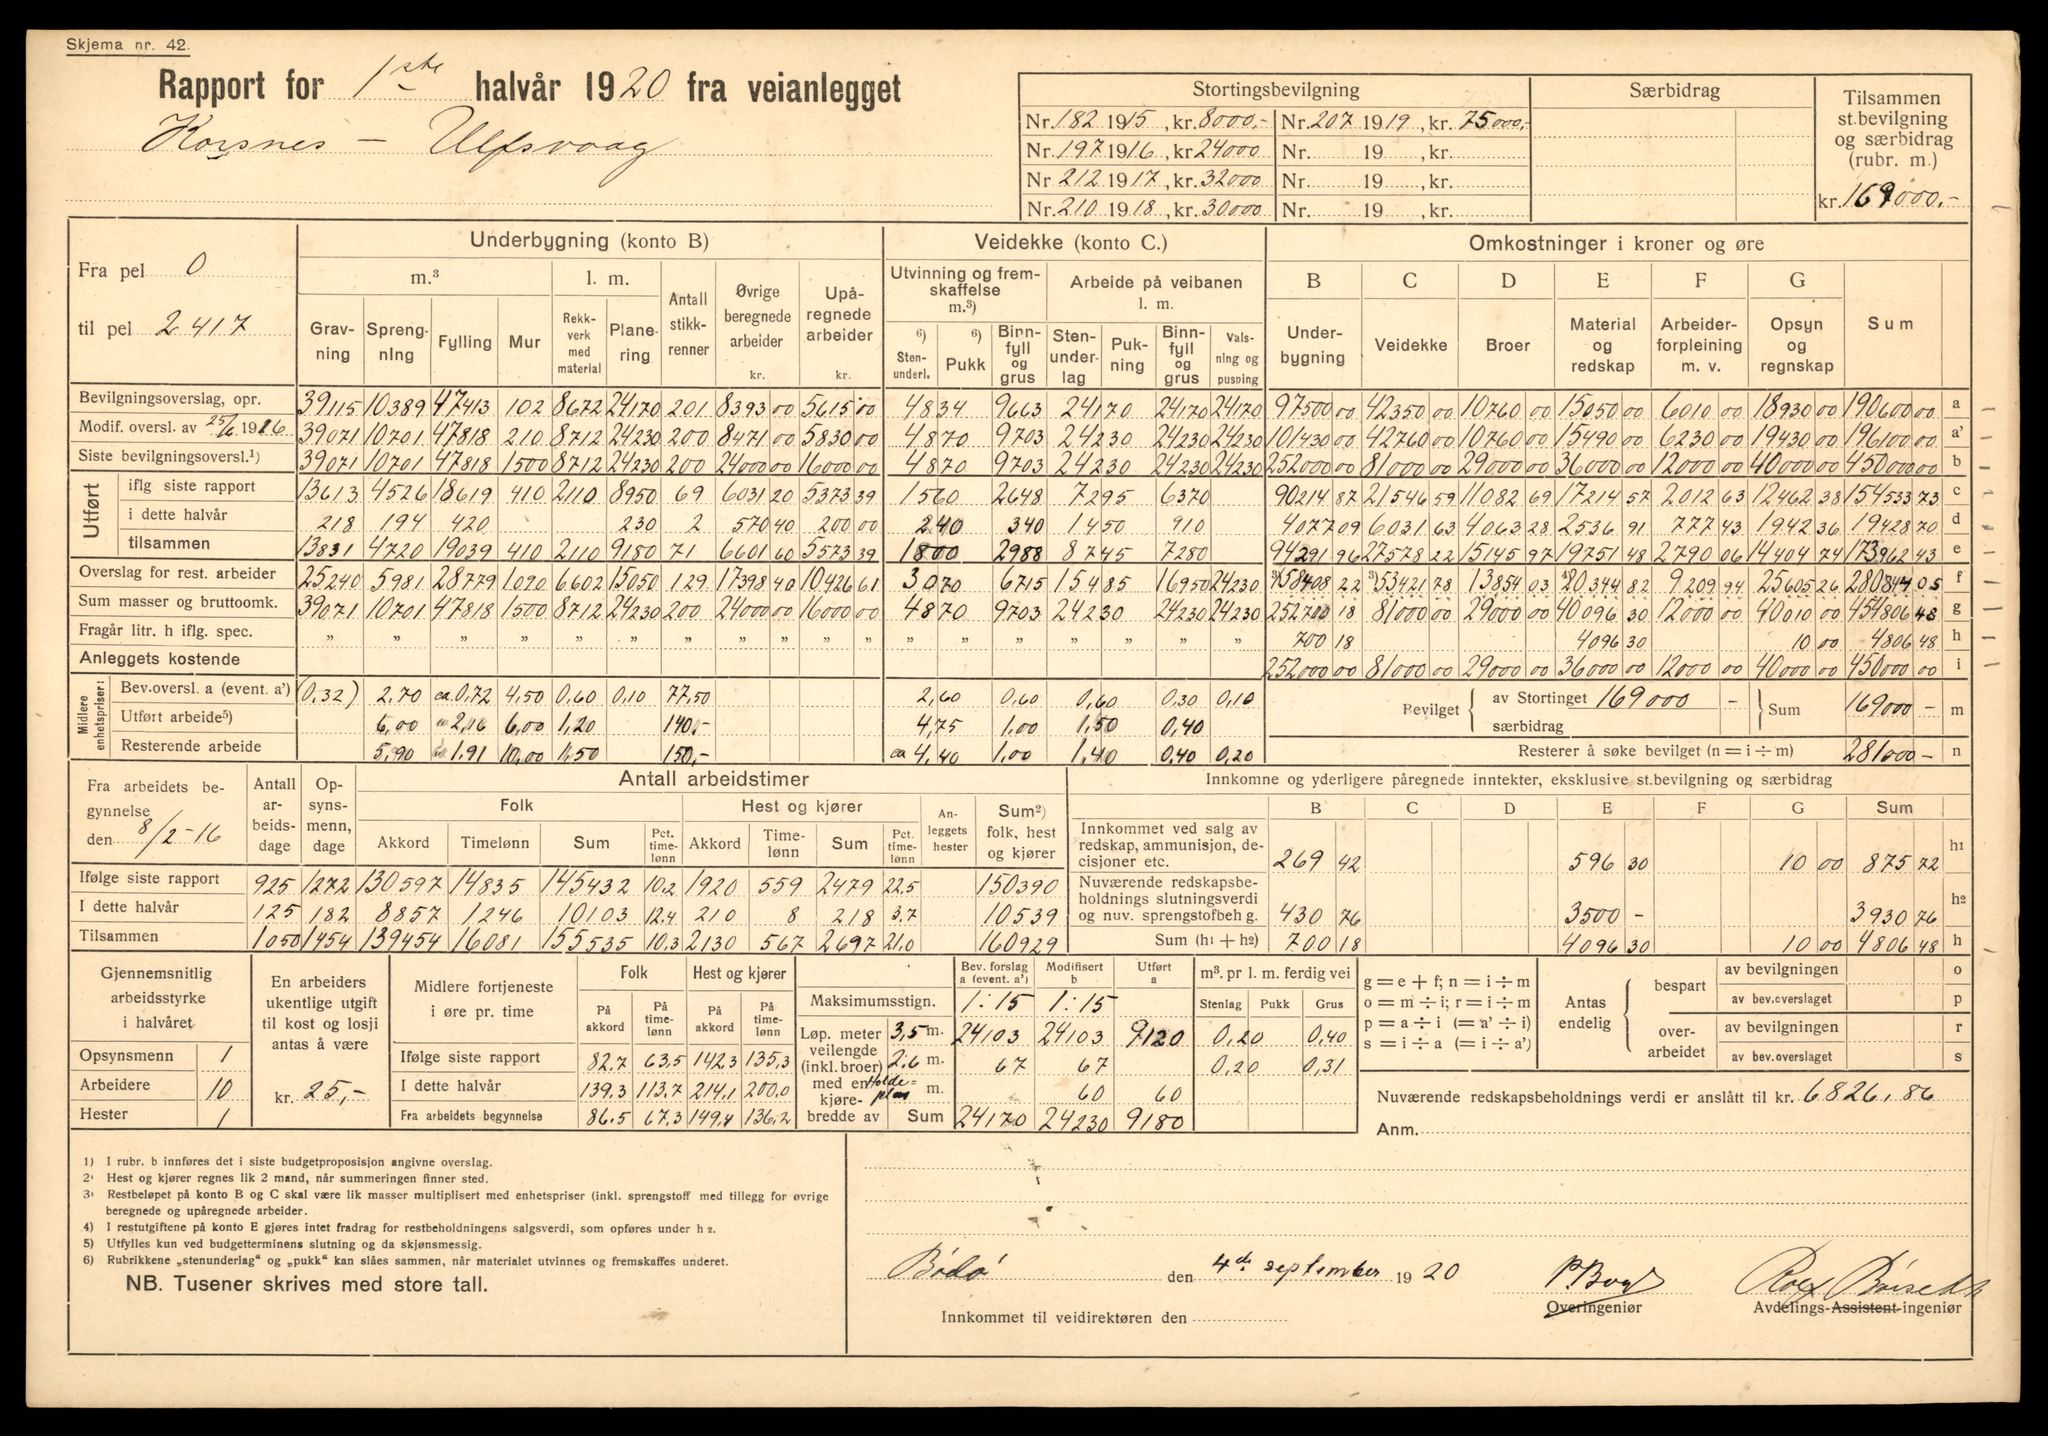 Skjema nr. 42.
Rapport for 1ste halvår 1920 fra veianlegget
Korsnes – Ulfsvaag
Stortingsbevilgning Særbidrag Tilsammen st.bevilgning og særbidrag (rubr. m.)
Nr. 182 1915, kr. 8000,- Nr. 207 1919, kr. 75000,-
Nr. 197 1916, kr. 24000 Nr. 19 , kr.
Nr. 212 1917, kr. 32000 Nr. 19 , kr.
Nr. 210 1918, kr. 30000 Nr. 19 , kr. kr. 169000,-
Fra pel 0
til pel 2417
Underbygning (konto B) Veidekke (konto C.) Omkostninger i kroner og øre
m.³ l. m. Antall stikkrenner Øvrige beregnede arbeider kr. Upåregnede arbeider kr. Utvinning og fremskaffelse m.³) Arbeide på veibanen l. m. B C D E F G
Gravning Sprengning Fylling Mur Rekkverk med material Planering 6) Stenunderl. 6) Pukk Binnfyll og grus Stenunderlag Pukning Binnfyll og grus Valsning og pusning Underbygning Veidekke Broer Material og redskap Arbeiderforpleining m. v. Opsyn og regnskap Sum
Bevilgningsoverslag, opr. 39115 10389 47413 102 8672 24170 201 8393 00 5615 00 4834 9663 24170 24170 24170 97500 00 42350 00 10760 00 15050 00 6010 00 18930 00 190600 00 a
Modif. oversl. av 25/6 1916 39071 10701 47818 210 8712 24230 200 8471 00 5830 00 4870 9703 24230 24230 24230 101430 00 42760 00 10760 00 15490 00 6230 00 19430 00 196100 00 a'
Siste bevilgningsoversl.¹) 39071 10701 47818 1500 8712 24230 200 24000 00 16000 00 4870 9703 24230 24230 24230 252000 00 81000 00 29000 00 36000 00 12000 00 40000 00 450000 00 b
Utført
iflg siste rapport 13613 4526 18619 410 2110 8950 69 6031 20 5373 39 1560 2648 7295 6370 90214 87 21546 59 11082 69 17214 57 2012 63 12462 38 154533 73 c
i dette halvår 218 194 420 230 2 570 40 200 00 240 340 1450 910 4077 09 6031 63 4063 28 2536 91 777 43 1942 36 19428 70 d
tilsammen 13831 4720 19039 410 2110 9180 71 6601 60 5573 39 1800 2988 8745 7280 94291 96 27578 22 15145 97 19751 48 2790 06 14404 74 173962 43 e
Overslag for rest. arbeider 25240 5981 28779 1090 6602 15050 129 17398 40 10426 61 3070 6715 15485 16950 24230 ³)158408 22 ³)53421 78 13854 03 ⁴)20344 82 9209 94 25605 26 280844 05 f
Sum masser og bruttoomk. 39071 10701 47818 1500 8712 24230 200 24000 00 16000 00 4870 9703 24230 24230 24230 252700 18 81000 00 29000 00 40096 30 12000 00 40010 00 454806 48 g
Fragår litr. h iflg. spec. „ „ „ „ „ „ „ „ „ „ „ „ „ „ „ „ „ „ 700 18 4096 30 10 00 4806 48 h
Anleggets kostende 252000 00 81000 00 29000 00 36000 00 12000 00 40000 00 450000 00 i
Midlere enhetspriser:
Bev.oversl. a (event. a') (0,32) 2,70 ca 0,72 4,50 0,60 0,10 77,50 2,60 0,60 0,60 0,30 0,10 Bevilget av Stortinget 169000 – Sum 169000 – m
Utført arbeide⁵) 6,00 ca 2,16 6,00 1,20 140,- 4,75 1,00 1,50 0,40 særbidrag
Resterende arbeide 5,90 1,91 10,00 1,50 150,- ca 4,40 1,00 1,40 0,40 0,20 Resterer å søke bevilget (n = i ÷ m) 281000 – n
Fra arbeidets begynnelse den 8/2-16
Antall arbeidsdage Opsynsmenn, dage Antall arbeidstimer Innkomne og yderligere påregnede inntekter, eksklusive st.bevilgning og særbidrag
Folk Hest og kjører Anleggets hester Sum²) folk, hest og kjører B C D E F G Sum
Akkord Timelønn Sum Pct. timelønn Akkord Timelønn Sum Pct. timelønn
Innkommet ved salg av redskap, ammunisjon, decisjoner etc. 269 42 596 30 10 00 875 72 h1
Ifølge siste rapport 925 1272 130597 14835 145432 10,2 1920 559 2479 22,5 150390
I dette halvår 125 182 8857 1246 10103 12,4 210 8 218 3,7 10539
Nuværende redskapsbeholdnings slutningsverdi og nuv. sprengstofbeh g. 430 76 3500 – 3930 76 h2
Tilsammen 1050 1454 139454 16081 155535 10,3 2130 567 2697 21,0 160929 Sum (h1 + h2) 700 18 4096 30 10 00 4806 48 h
Gjennemsnitlig arbeidsstyrke i halvåret
Opsynsmenn 1
Arbeidere 10
Hester 1
En arbeiders ukentlige utgift til kost og losji antas å være
kr. 25,-
Midlere fortjeneste i øre pr. time Folk Hest og kjører
På akkord På timelønn På akkord På timelønn
Ifølge siste rapport 82,7 63,5 142,3 135,3
I dette halvår 139,3 113,7 214,1 200,0
Fra arbeidets begynnelse 86,5 67,3 149,4 136,2
Bev. forslag a (event. a') Modifisert b Utført a
Maksimumsstign. 1:15 1:15
Løp. meter veilengde (inkl. broer) med en kjørebredde av
3,5 m. 24103 24103 9120
2,6 m. 67 67
Holdeplas m. 60 60
Sum 24170 24230 9180
m³. pr l. m. ferdig vei
Stenlag Pukk Grus
0,20 0,40
0,20 0,31
g = e + f; n = i ÷ m
o = m ÷ i; r = i ÷ m
p = a ÷ i (= a' ÷ i)
s = i ÷ a (= i ÷ a')
Antas endelig
bespart av bevilgningen o
av bev.overslaget p
overarbeidet av bevilgningen r
av bev.overslaget s
Nuværende redskapsbeholdnings verdi er anslått til kr. 6826,86
Anm.
1) I rubr. b innføres det i siste budgetproposisjon angivne overslag.
2) Hest og kjører regnes lik 2 mand, når summeringen finner sted.
3) Restbeløpet på konto B og C skal være lik masser multiplisert med enhetspriser (inkl. sprengstoff med tillegg for øvrige
beregnede og upåregnede arbeider.
4) I restutgiftene på konto E gjøres intet fradrag for restbeholdningens salgsverdi, som opføres under h 2.
5) Utfylles kun ved budgetterminens slutning og da skjønsmessig.
6) Rubrikkene „stenunderlag“ og „pukk“ kan slåes sammen, når materialet utvinnes og fremskaffes underet.
NB. Tusener skrives med store tall.
Bodø den 4de september 1920
Overingeniør Avdelings-Assistent-ingeniør
Innkommet til veidirektøren den